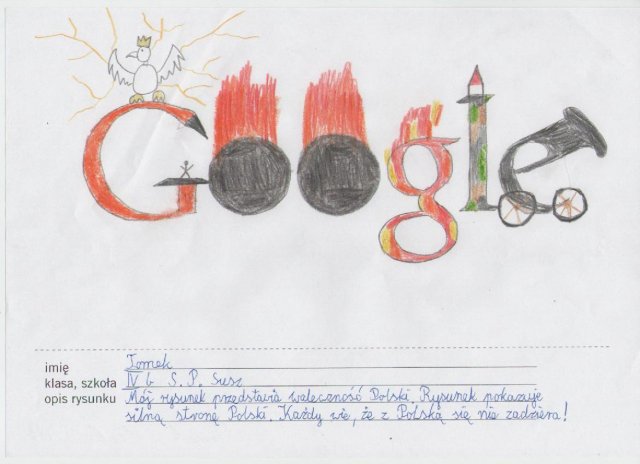 Google
imię Tomek
klasa, szkoła IV b S. P. Susz
opis rysunku Mój rysunek przedstawia waleczność Polski. Rysunek pokazuje
silną stronę Polski. Każdy wie, że z Polską się nie zadziera!